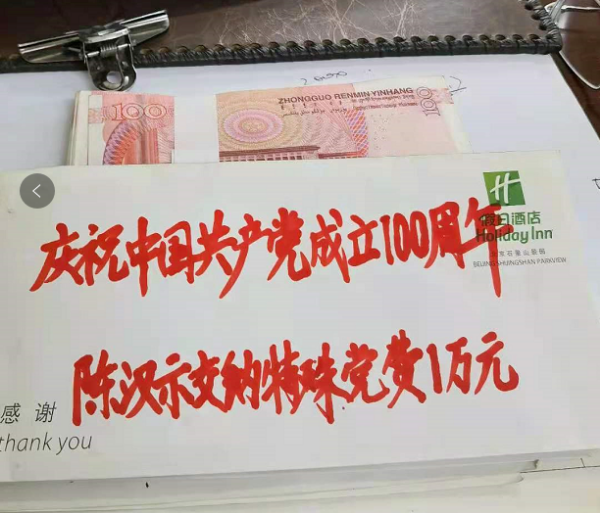 100
ZHONGGUO RENMIN YINHANG
100
假日酒店
Holiday Inn
BEIJING SHIJINGSHAN PARKVIEW
庆祝中国共产党成立100周年
陈汉示交纳特殊党费1万元
感谢
thank you